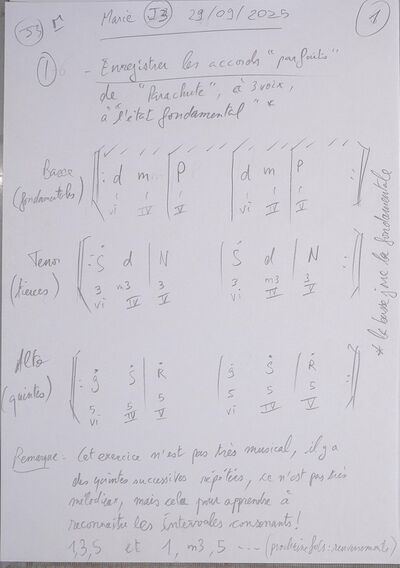 J3 Marie J3 29/09/2025 1
1 - Enregistrer les accords "parfaits"
de "Parachute", à 3 voix,
à "l'état fondamental" *
Basse d m P d m P
(fondamentales) 1 1 1 1 1 1
vi IV V vi IV V
Tenor S d N S d N
(tierces) 3 m3 3 3 m3 3
vi IV V vi IV V
Alto g S R g S R
(quintes) 5 5 5 5 5 5
vi IV V vi IV V
* la basse joue la fondamentale
Remarque - Cet exercice n'est pas très musical, il y a
des quintes successives répétées, ce n'est pas très
mélodieux, mais cela pour apprendre à
reconnaître les intervales consonants !
1,3,5 et 1, m3, 5 ... (prochaine fois : renversements)